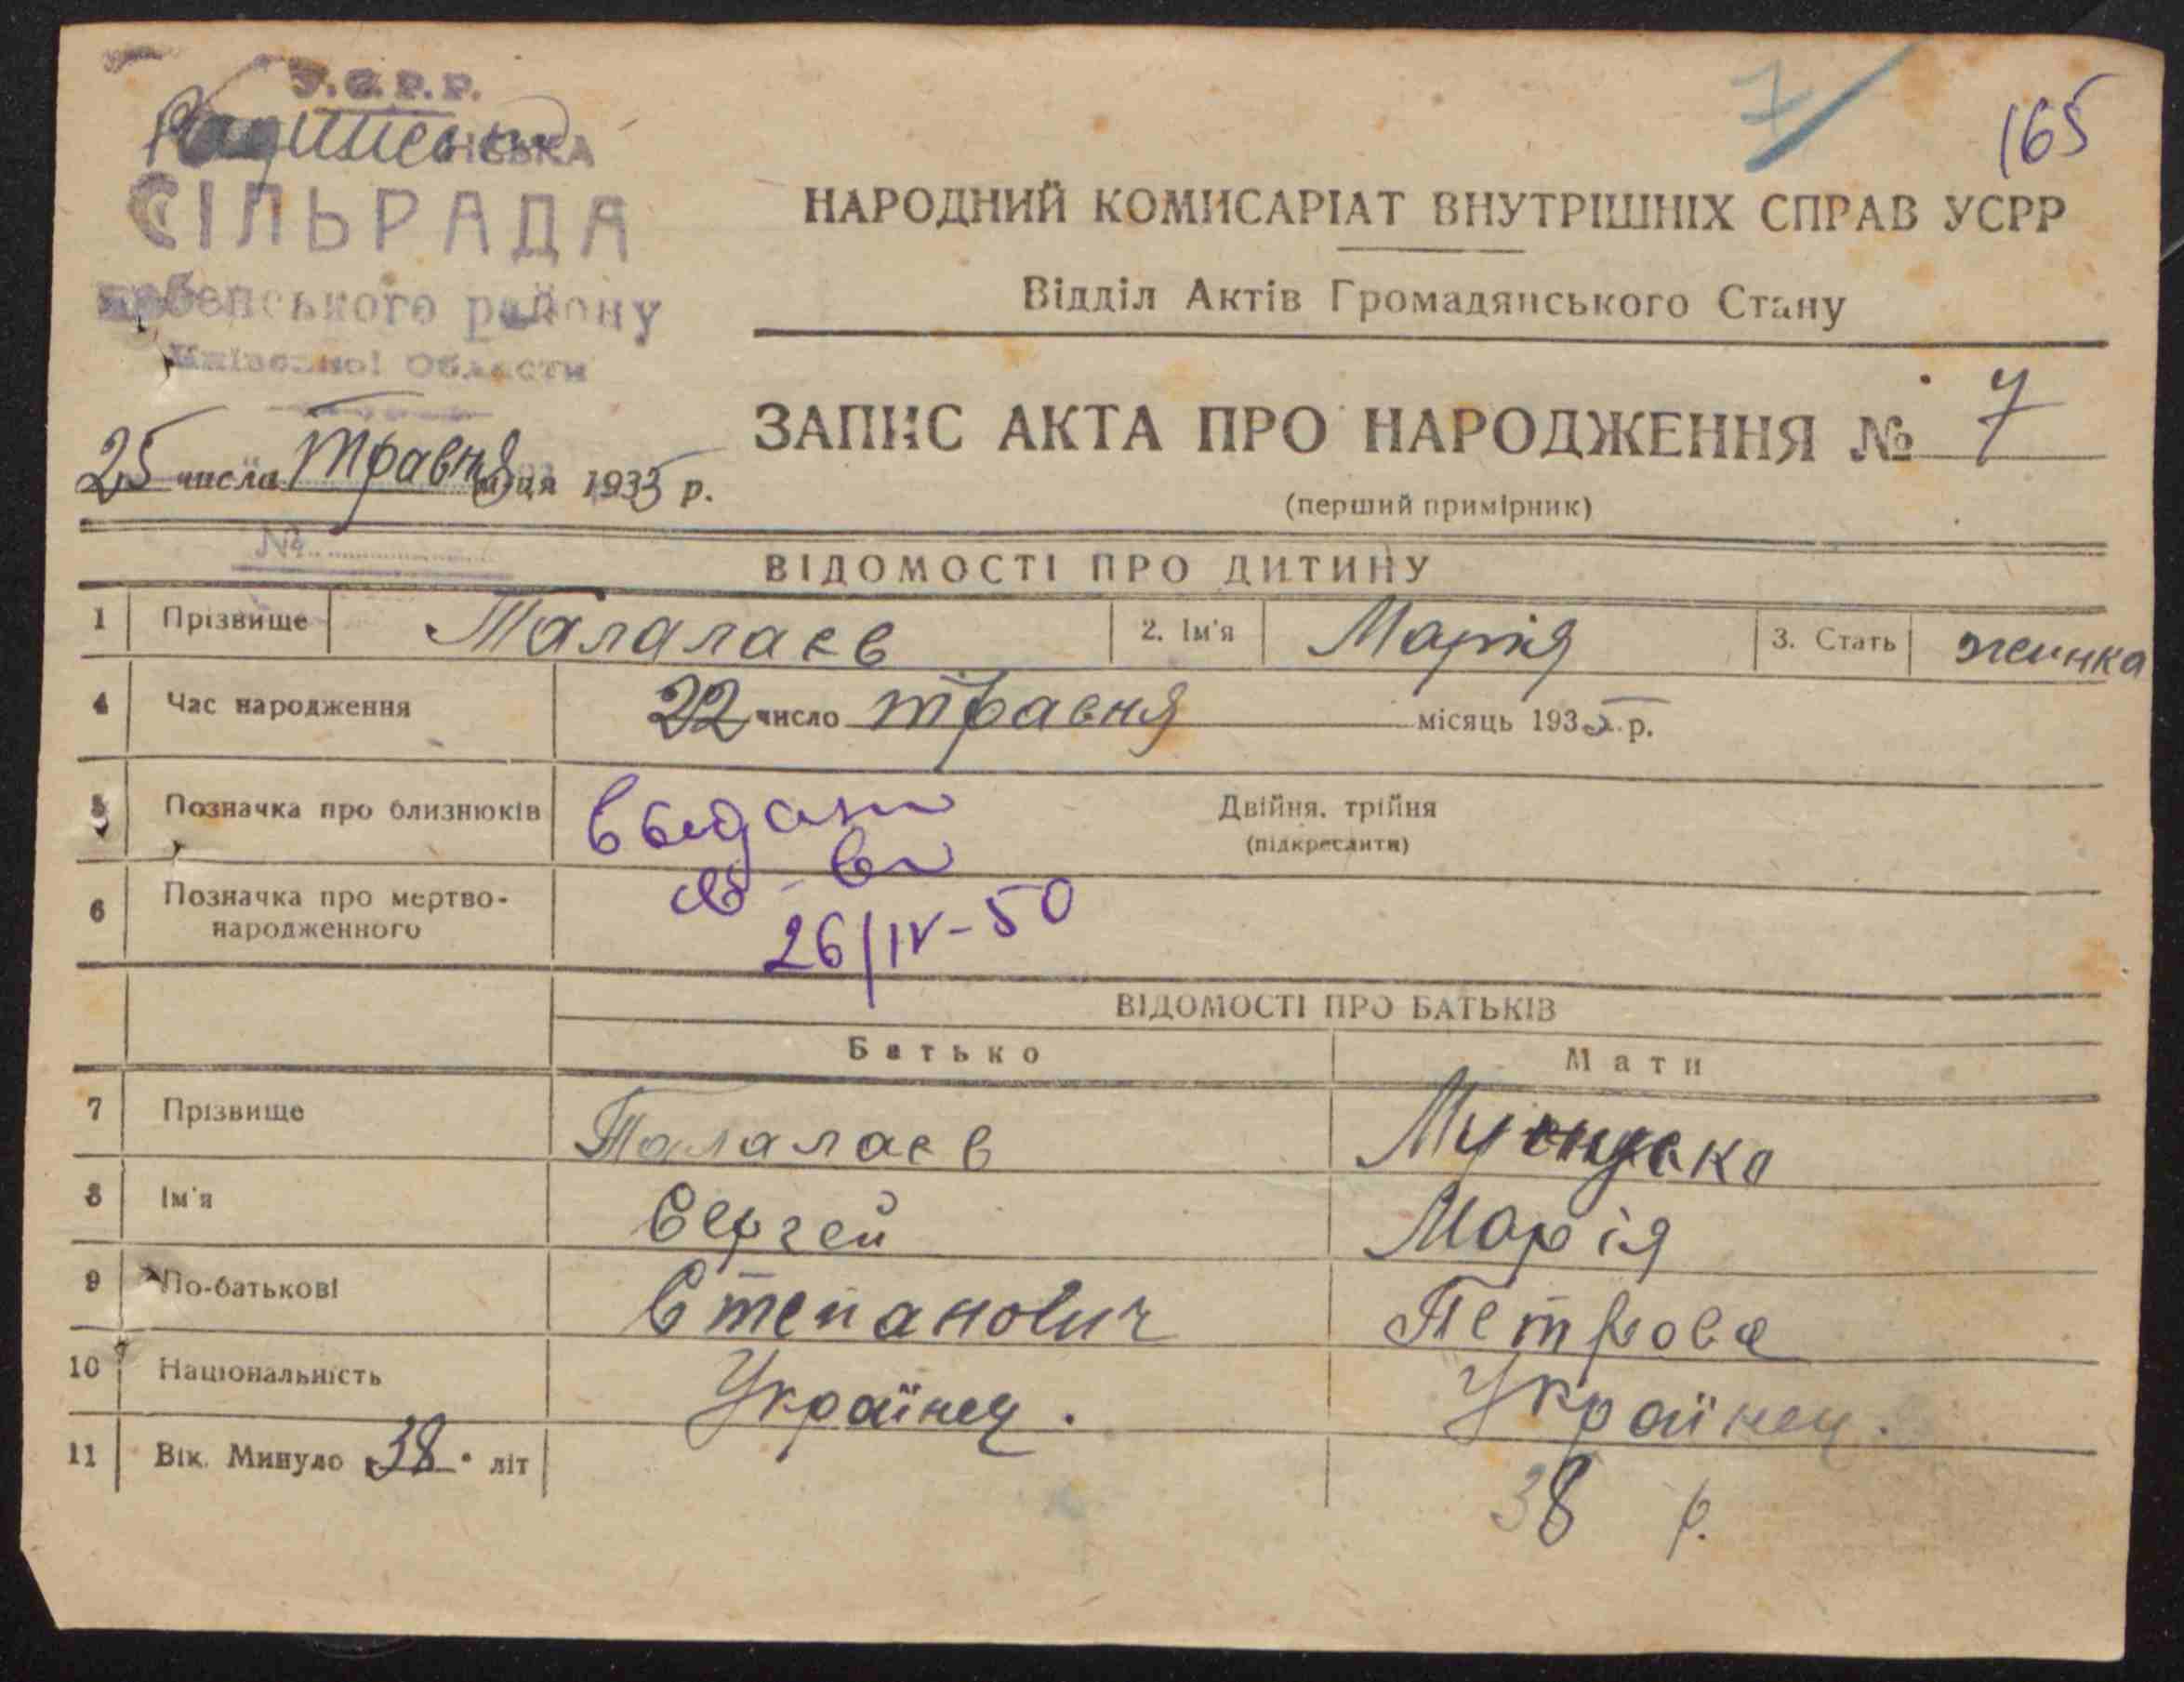 У.С.Р.Р.
НСЬКА
СІЛЬРАДА
району
Області
7
165
НАРОДНИЙ КОМИСАРІАТ ВНУТРІШНІХ СПРАВ УСРР
Відділ Актів Громадянського Стану
25 числа Травня м-ця 1935 р.
ЗАПИС АКТА ПРО НАРОДЖЕННЯ № 7
(перший примірник)
№
ВІДОМОСТІ ПРО ДИТИНУ
1 Прізвище Талалаєв 2. Ім'я Марія 3. Стать жинка
4 Час народження 22 число травня місяць 1935 р.
5 Позначка про близнюків Двійня, трійня
(підкреслити)
выдан
св-во
26/IV-50
6 Позначка про мертво-
народженного
ВІДОМОСТІ ПРО БАТЬКІВ
Батько Мати
7 Прізвище Талалаєв
8 Ім'я Сергей Марія
9 По-батькові Степанович Петрова
10 Національність Украйнец. Украйнец.
11 Вік. Минуло 38 літ 38 р.